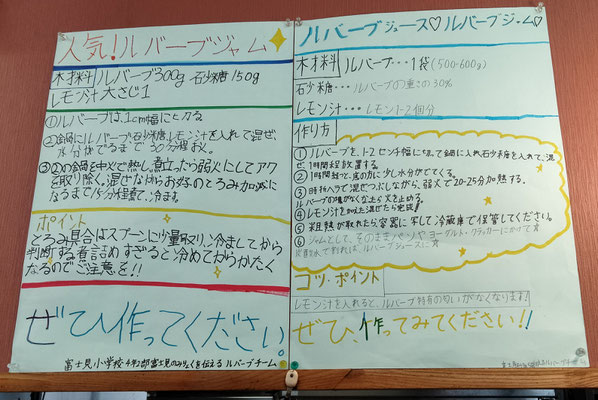 人気!ルバーブジャム
材料 ルバーブ300g 石少糖150g
レモン汁大さじ1
①ルバーブは、1cm幅に切る
②鍋にルバーブ、石少糖、レモン汁を入れて混ぜ、
水分がでるまで30分程おく。
③②の鍋を中火で熱し煮立ったら弱火にしてアク
を取り除く。混ぜながらお好のとろみ加減に
なるまで15分程煮て、冷ます。
ポイント
とろみ具合はスプーンに少量取り、冷ましてから
判断する。煮詰めすぎると冷めてからかたく
なるのでご注意を!!
ぜひ作ってください。
富士見小学校4年2部富士見のみりょくを伝えるルバーブチーム
ルバーブジュース♡ルバーブジャム♡
材料 ルバーブ・・・1袋(500-600g)
石少糖・・・ルバーブの重さの30%
レモン汁・・・レモン1-2個分
作り方
①ルバーブを、1-2センチ幅に切って鍋に入れ、石少糖を入れて、混
ぜ1時間程放置する。
②1時間程で、底の方に少し水分がでてくる。
③時折ヘラで混ぜてつぶしながら、弱火で20-25分加熱する。
ルバーブの塊がなくなったら火を止める。
④レモン汁を加え混ぜたら完成!
⑤粗熱が取れたら容器に写して冷蔵庫で保管してください。
⑥ジャムとして、そのままパンや、ヨーグルト、クラッカーにかけて☆
炭酸水で割れば、ルバーブジュースに☆
コツ・ポイント
レモン汁を入れると、ルバーブ特有の匂いがなくなります!
ぜひ、作ってみてください!!